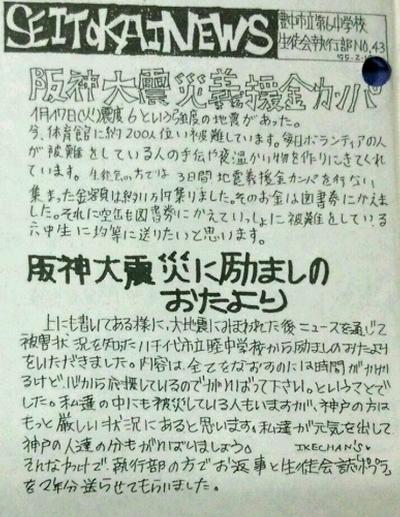 SEITOKAI NEWS
豊中市立第6中学校
生徒会執行部 NO.43
'95.2.
阪神大震災義援金カンパ
1月17日(火)震度6という強度の地震があった。
今、体育館に約200人位い被難しています。毎日ボランティアの人
が被難をしている人の手伝いや夜温かい物を作りにきてくれ
ています。生徒会の方では3日間地震義援金カンパを行ない
集まった金額は約11万円集りました。そのお金は図書券にかえま
した。それに空缶も図書券にかえていっしょに被難をしている
六中生に均等に送りたいと思います。
阪神大震災に励ましの
おたより
上にも書いてある様に、大地震にみまわれた後ニュースを通じて
被害状況を知った八千代市立睦中学校から励ましのおたより
をいただきました。内容は、全てをなおすのには時間がかか
るけど、心から応援しているのでがんばって下さい。ということで
した。私達の中にも被災している人もいますが、神戸の方は
もっと厳しい状況にあると思います。私達が元気を出して
神戸の人達の分もがんばりましょう。 IKECHAN'S
そんなわけで、執行部の方でお返事と生徒会誌ポプラ
を2年分送らせてもらいました。